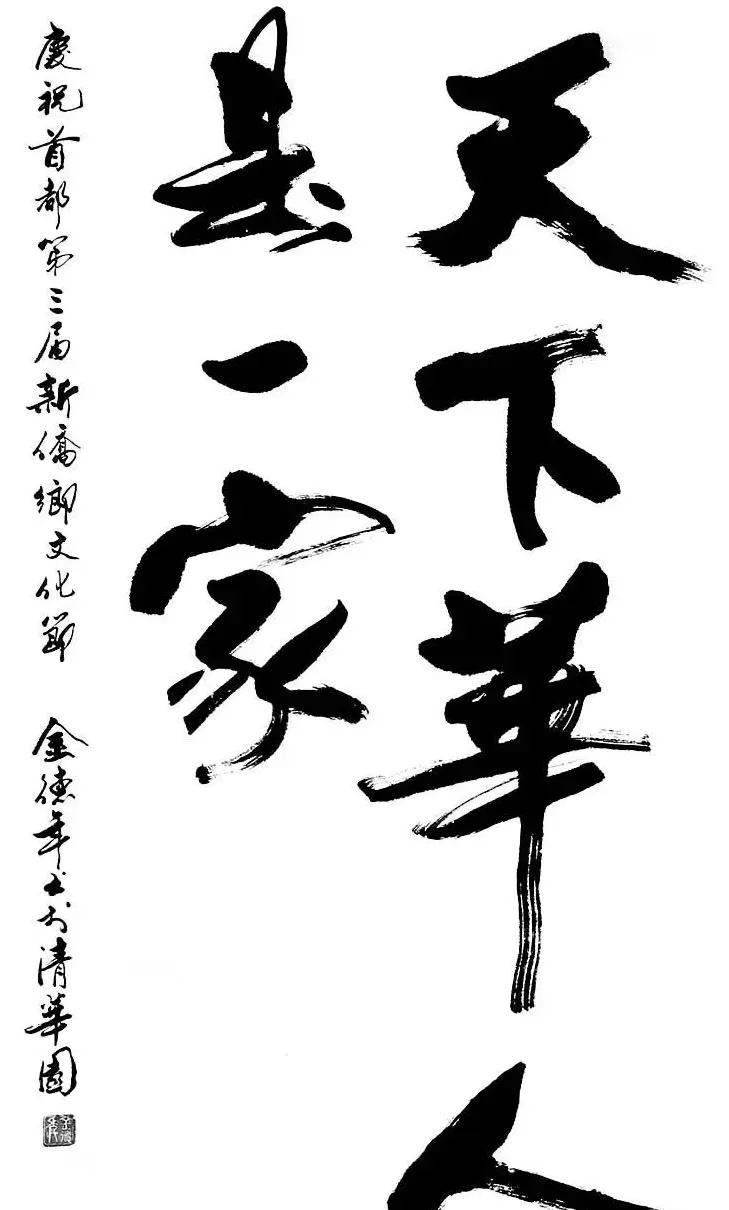 天下華人
是一家
慶祝首都第三届新僑鄉文化節 金德年书於清華園